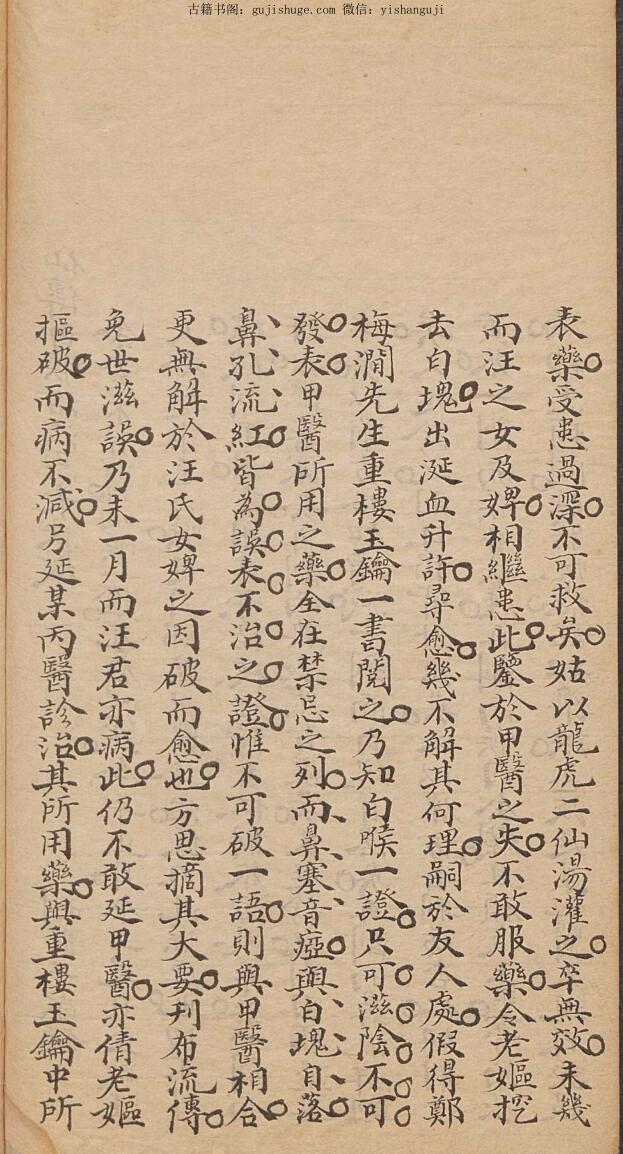 古籍书阁：gujishuge.com 微信：yishanguji
表藥受患過深不可救矣姑以龍虎二仙湯灌之卒無效未幾
而汪之女及婢相繼患此鑒於甲醫之失不敢服藥令老嫗挖
去白塊出涎血升許尋愈幾不解其何理嗣於友人處假得鄭
梅澗先生重樓玉鑰一書閱之乃知白喉一證只可滋陰不可
發表甲醫所用之藥全在禁忌之列而鼻塞音瘂與白塊自落
鼻孔流紅皆為誤表不治之證惟不可破一語則與甲醫相合
更無解於汪氏女婢之因破而愈也方思摘其大要刋布流傳
免世滋誤乃未一月而汪君亦病此仍不敢延甲醫亦倩老嫗
摳破而病不減另延某丙醫診治其所用藥與重樓玉鑰中所